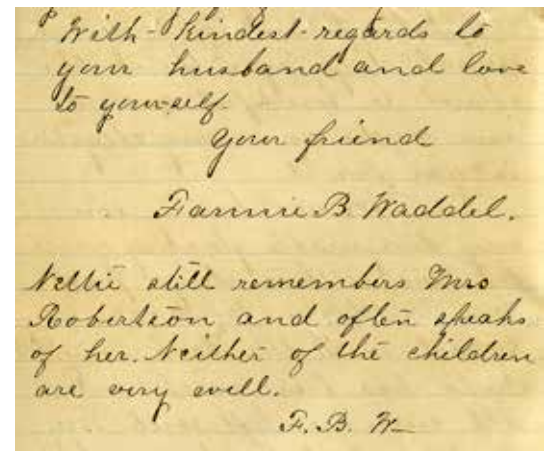 With kindest regards to
your husband and love
to yourself.
Your friend
Fannie B. Waddel.
Nettie still remembers Mrs
Robertson and often speaks
of her. Neither of the children
are very well.
F. B. W—